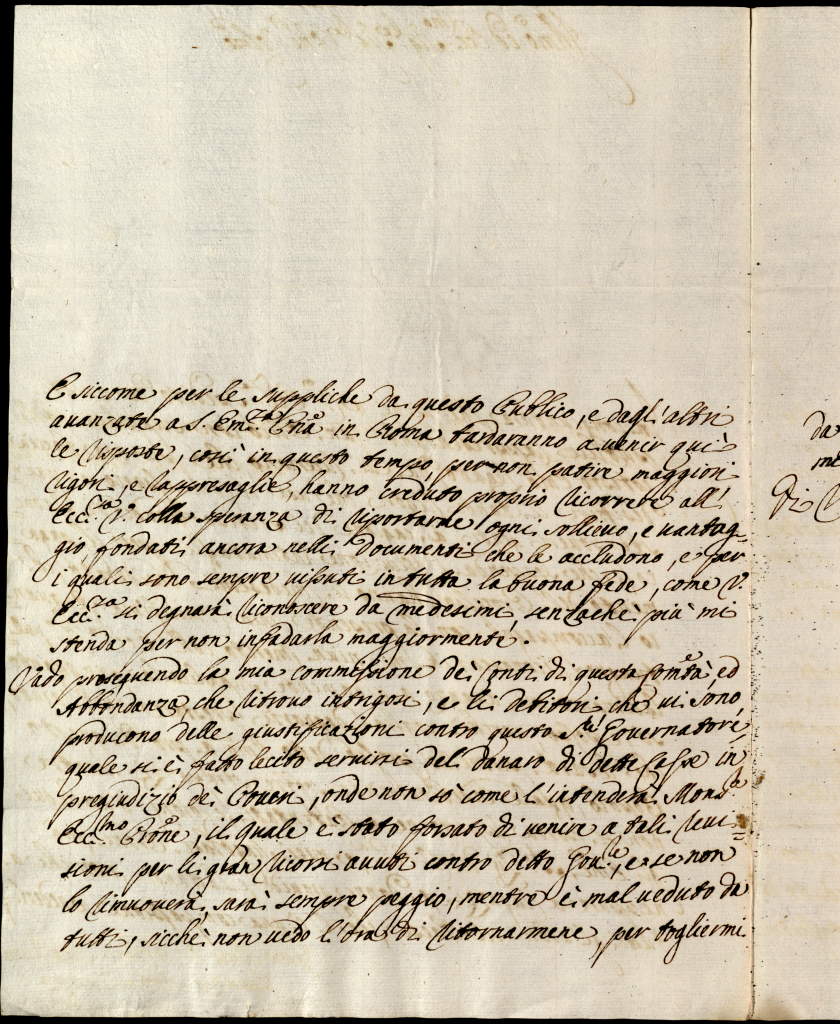 E siccome per le suppliche da questo Publico, e dagl'altri
avanzate a S. Em.za Pña in Roma tardaranno a venir quì
le risposte, così in questo tempo, per non patire maggiori
rigori, e rappresaglie, hanno creduto proprio ricorrere all'
Ecc.za V. colla speranza di riportarne ogni sollievo, e vantag=
gio, fondati ancora nelli documenti che le accludono, e per
i quali sono sempre vissuti in tutta la buona fede, come V.
Ecc.za si degnarà riconoscere da medesimi, senza chè più mi
stenda per non infadarla maggiormente.
Vado proseguendo la mia commissione dei Conti di questa Com.tà, ed
Abbondanza, che ritrovo intrigosi, e li debitori che vi sono,
producono delle giustificazioni contro questo S.re Governatore
quale si è fatto lecito servirsi del danaro di dette Casse in
pregiudizio dei Poveri, onde non sò come l'intenderà Mons.re
Ecc.mo Prõne, il quale è stato forzato di venire a tali revi=
sioni per li gran ricorsi avuti contro detto Gov.re, e se non
lo rimuoverà, sarà sempre peggio, mentre è mal veduto da
tutti, sicchè non vedo l'ora di ritornarmene, per togliermi
da
di